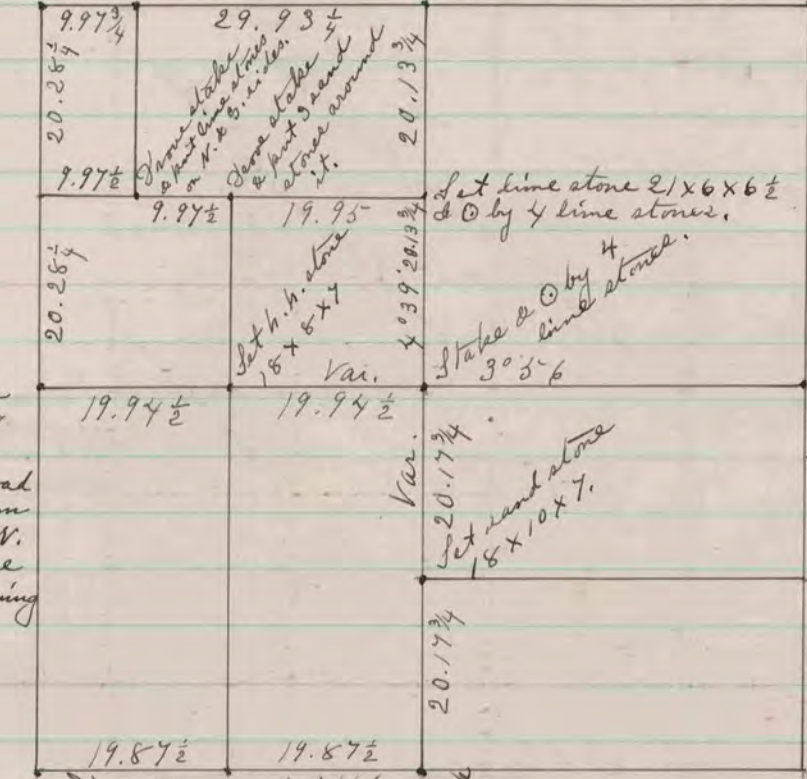 9.97¾
29.93¼
20.28¼
Drove stake
& put lime stones
on N. & S. sides.
Drove stake
& put 3 sand
stones around
it.
20.13¾
9.97½
9.97½
19.95
Set lime stone 21 x 6 x 6½
& ⊙ by 4 lime stones.
20.28¼
Set h. h. stone
18 x 8 x 7
Var.
4°39'
20.13¾
Stake & ⊙ by 4
lime stones.
3°56
19.94½
19.94½
Var.
20.17¾
Set sand stone
18 x 10 x 7.
N.
20.17¾
19.87½
19.87½